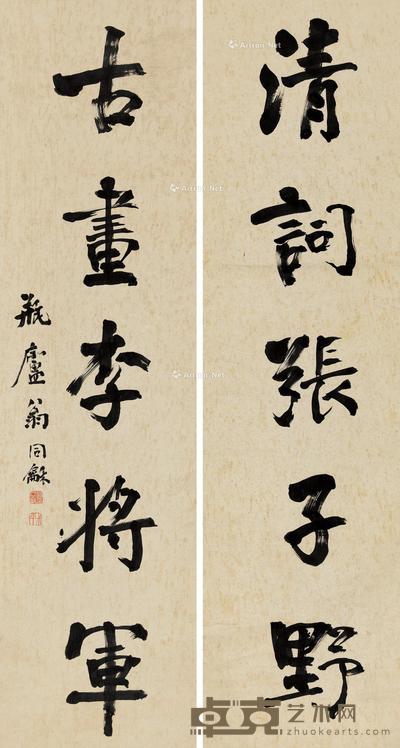 清詞張子野
古畫李將軍
瓶廬翁同龢
Artron.Net
Artron.Net
Artron.Net
卓克艺术网
zhuokearts.com